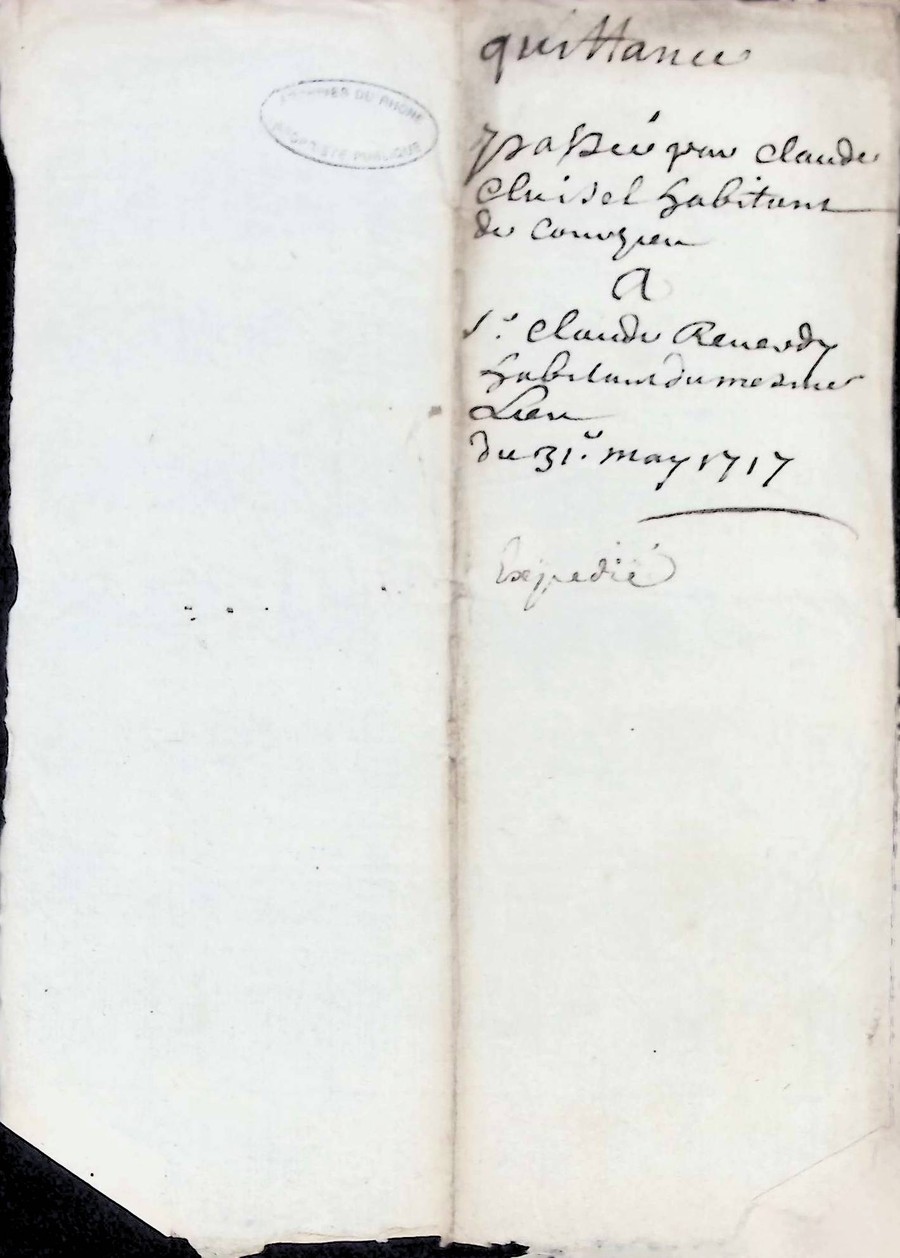 ARCHIVES DU RHONE
PROPRIÉTÉ PUBLIQUE
quittance
passeé par Claude
Cluisel habitant
de Couzieu
A
Sr. Claude Reuerdy
habitant du mesme
Lieu
du 31.e may 1717
Expedié